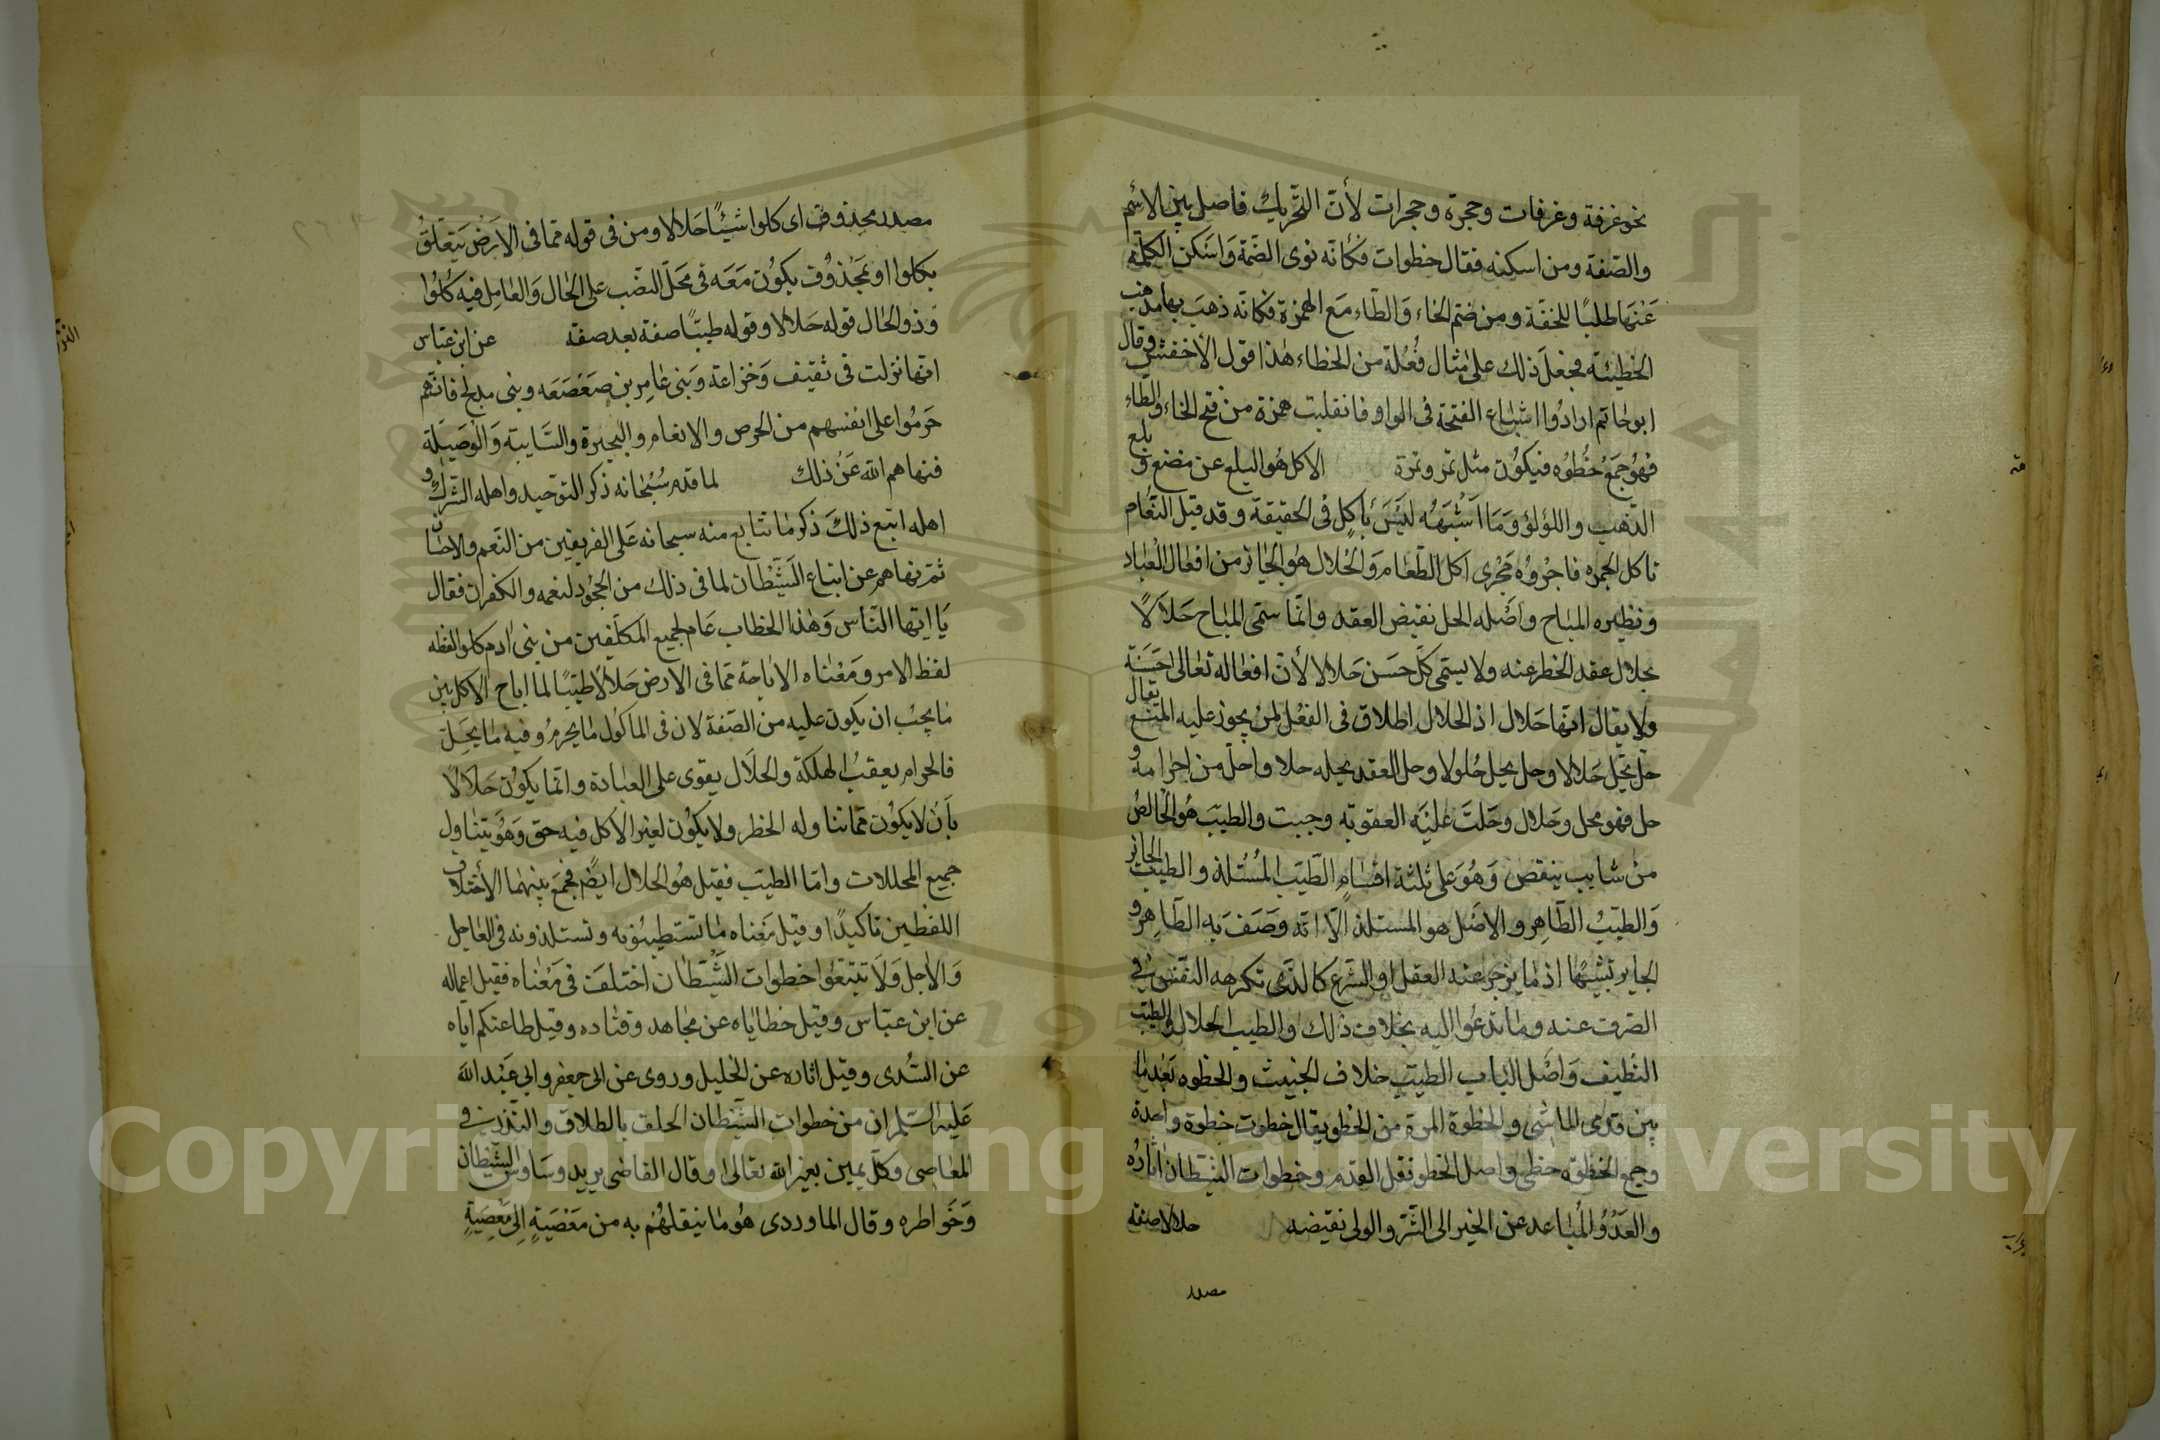 نحو غرفة وغرفات وحجرة وحجرات لأن التحريك فاصل بين الاسم
والصفة ومن اسكنه فقال خطوات فكأنه نوى الضمة واسكن الكلمة
عنها طلبًا للخفة ومن ضم الخاء والطاء مع الهمزة فكانه ذهب بها مذهب
الخطيئة فجعل ذلك على مثال فُعُلة من الخطاء هذا قول الأخفش وقال
ابو حاتم ارادوا اشباع الفتحة فى الواو فانقلبت همزة من فتح الخاء والطاء
فهو جمع خطوه فيكون مثل تمر وتمرة الاكل هو البلع عن مضغ وبلع
الذهب واللؤلؤ وما اشبهه ليس بأكل فى الحقيقة وقد قيل النعام
تاكل الجمره فاجروه مجرى اكل الطعام والحلال هو الجائز من افعال العباد
ونظيره المباح واصله الحل نقيض العقد وانما سمى المباح حلالاً
بحلال عقد الخطر عنه ولا يسمى كل حسن حلالا لأن افعاله تعالى حسنة
ولا يقال انها حلال اذ الحلال اطلاق فى الفعل لمن يجوز عليه المنع يقال
حل يحل حلالا وحل يحل حلولا وحل العقد يحله حلا واحل من احرامه
حل فهو محل وحلال وحلت عليه العقوبة وجبت والطيب هو الخالص
من شايب ينقص وهو على ثلثة اقسام الطيب المستلذ والطيب الجائز
والطيب الطاهر والاصل هو المستلذ الا انه وصف به الطاهر و
الجايز تشبيها اذ ما يزجر عنه العقل او الشرع كالذى تكرهه النفس فى
الصرف عنه وما تدعوا اليه بخلاف ذلك والطيب الحلال والطيب
النظيف واصل الباب الطيب خلاف الخبيث والخطوه بعد ما
بين قدمى الماشى والخطوة المرة من الخطو يقال خطوت خطوة واحدة
وجمع الخطوة خطى واصل الخطو نقل القدم وخطوات الشيطان اثاره
والعدو المباعد عن الخير الى الشر والولى نقيضه حلالا صفة
مصدر
مصدر محذوف اى كلوا شيئًا حلالا ومن فى قوله مما فى الارض يتعلق
بكلوا او بمحذوف يكون معه فى محل النصب على الحال والعامل فيه كلوا
وذو الحال قوله حلالا وقوله طيبًا صفة بعد صفة عن ابن عباس
انها نزلت فى ثقيف وخزاعة وبنى عامر بن صعصعه وبنى مدلج فانهم
حرموا على انفسهم من الحرص والانعام والبحيرة والسايبة والوصيلة
فنهاهم الله عن ذلك لما قدم سبحانه ذكر التوحيد واهله الشرك و
اهله اتبع ذلك ذكر ما تتابع منه سبحانه على الفريقين من النعم والاحسان
ثم نهاهم عن اتباع الشيطان لما فى ذلك من الجحود لنعمه والكفران فقال
يا ايها الناس وهذا الخطاب عام لجميع المكلفين من بنى ادم كلوا لفظه
لفظ الامر ومعناه الاباحة مما فى الارض حلالا طيبًا لما اباح الاكل بين
ما يجب ان يكون عليه من الصفة لان فى الماكول ما يحرم وفيه ما يحل
فالحرام يعقب الهلكة والحلال يقوى على العبادة وانما يكون حلالاً
بان لا يكون مما تناوله الحظر ولا يكون لغير الاكل فيه حق وهو يتناول
جميع المحللات واما الطيب فقيل هو الحلال ايضا فجمع بينهما الأختلاف
اللفظين تاكيدًا وقيل معناه ما تستطيبونه وتستلذونه فى العاجل
والاجل ولا تتبعوا خطوات الشيطان اختلف فى معناه فقيل اعماله
عن ابن عباس وقيل خطاياه عن مجاهد وقتاده وقيل طاعتكم اياه
عن السدى وقيل اثاره عن الخليل وروى عن ابى جعفر وابى عبد الله
عليه السلم ان من خطوات الشيطان الحلف بالطلاق والنذر فى
المعاصى وكل يمين بغير الله تعالى وقال القاضى يريد وساوس الشيطان
وخواطره وقال الماوردى هو ما ينقلهم به من معصية الى معصية
Copyright © King Saud University